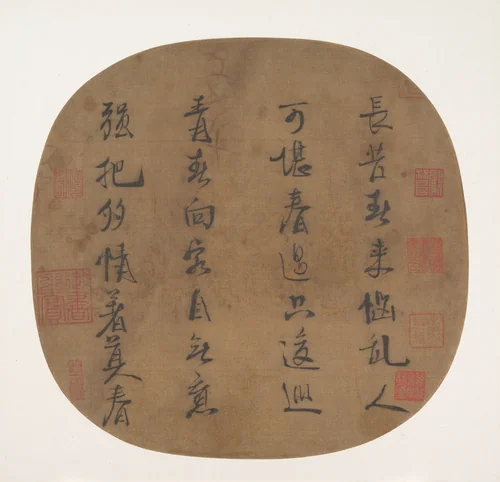 長苦春来惱乱人
可堪春過只逡巡
青春向客自無意
強把多情著莫春